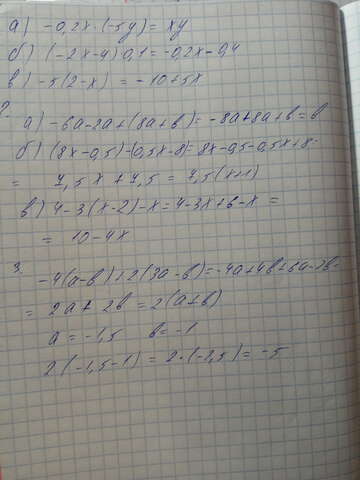 а) -0,2x·(-5y)= xy
б) (-2x-4)0,1=-0,2x-0,4
в) -5(2-x) = -10+5x
2.
а) -6a-2a+(8a+b)=-8a+8a+b=b
б) (8x-0,5)-(0,5x-8)=8x-0,5-0,5x+8=
= 7,5x+7,5 = 7,5(x+1)
в) 4-3(x-2)-x=4-3x+6-x =
= 10-4x
3.
-4(a-b)+2(3a-b)=-4a+4b+6a-2b=
= 2a+2b=2(a+b)
a=-1,5 b=-1
2(-1,5-1)=2·(-2,5)=-5